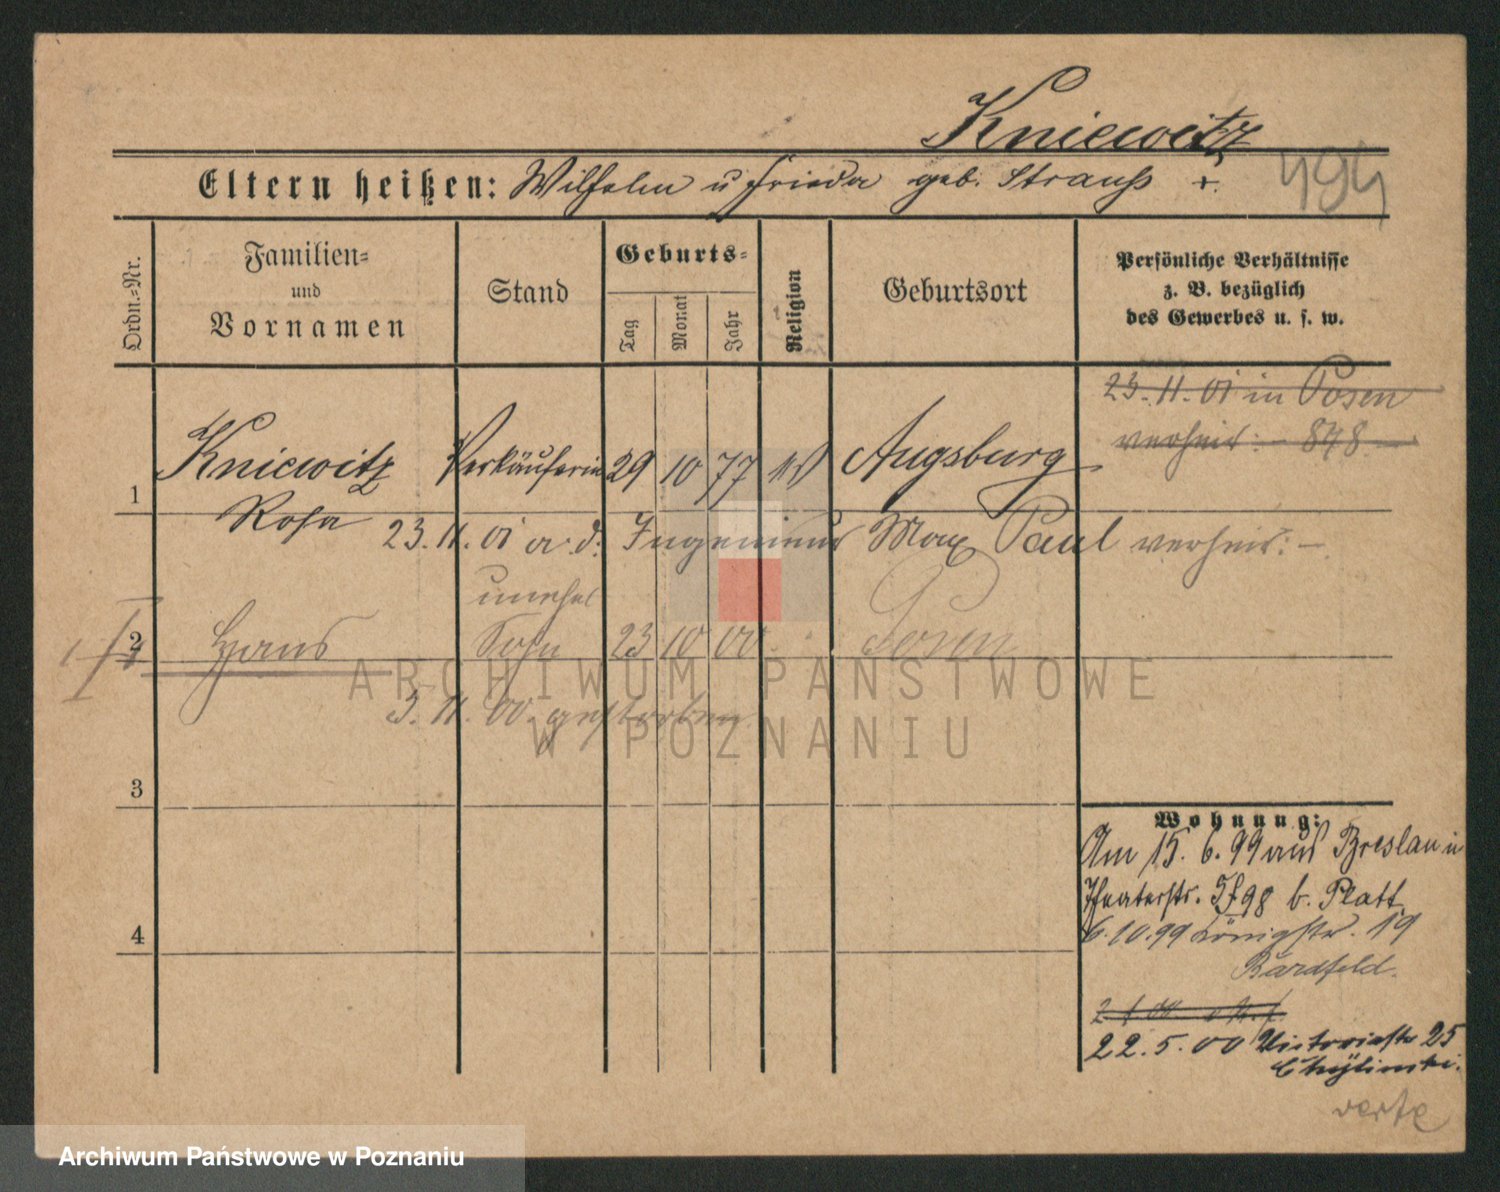 Kniewitz
Eltern heißen: Wilhelm u Frieda geb. Strauß +.
494
Ordn.-Nr.
Familien-
und
Vornamen
Stand
Geburts-
Tag
Monat
Jahr
Religion
Geburtsort
Persönliche Verhältnisse
z. B. bezüglich
des Gewerbes u. s. w.
23.11.01 in Posen
verheir: – 898 –
1 Kniewitz Verkäuferin 29 10 77 Augsburg
Rosa 23.11.01 a. d. Ingenieur Max Paul verheir: –
unehel
2 Hans Sohn 23 10 00. Posen
3.11.00. gestorben
3
4
Wohnung:
Am 15. 6. 99 aus Breslau in
Theaterstr. b. Platt
6.10.99 Königstr. 19
Bardfeld.
22.5.00 Victoriastr 25
Chylinski.
verte
ARCHIWUM PAŃSTWOWE
W POZNANIU
Archiwum Państwowe w Poznaniu